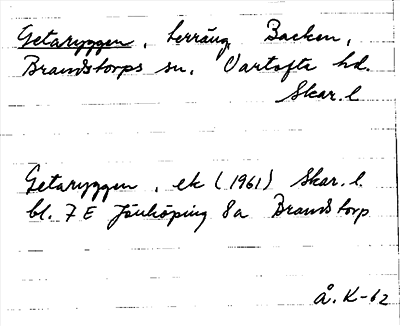 Getaryggen, terräng, Backen,
Brandstorps sn, Vartofta hd.
Skar. l
Getaryggen, ek (1961) Skar. l.
bl. 7 E Jönköping 8a Brandstorp
å. K-62